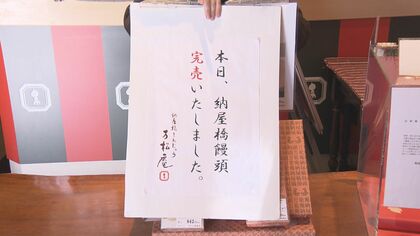 本日、納屋橋饅頭
完売いたしました。
納屋橋まんじゅう
万松庵